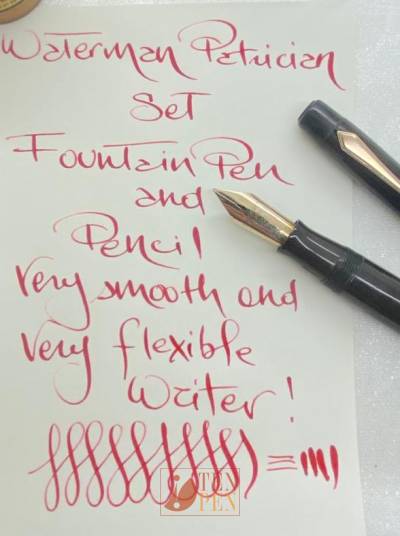 Waterman Patrician
Set
Fountain Pen
and
Pencil
Very smooth and
very flexible
Writer!
TEN
PEN